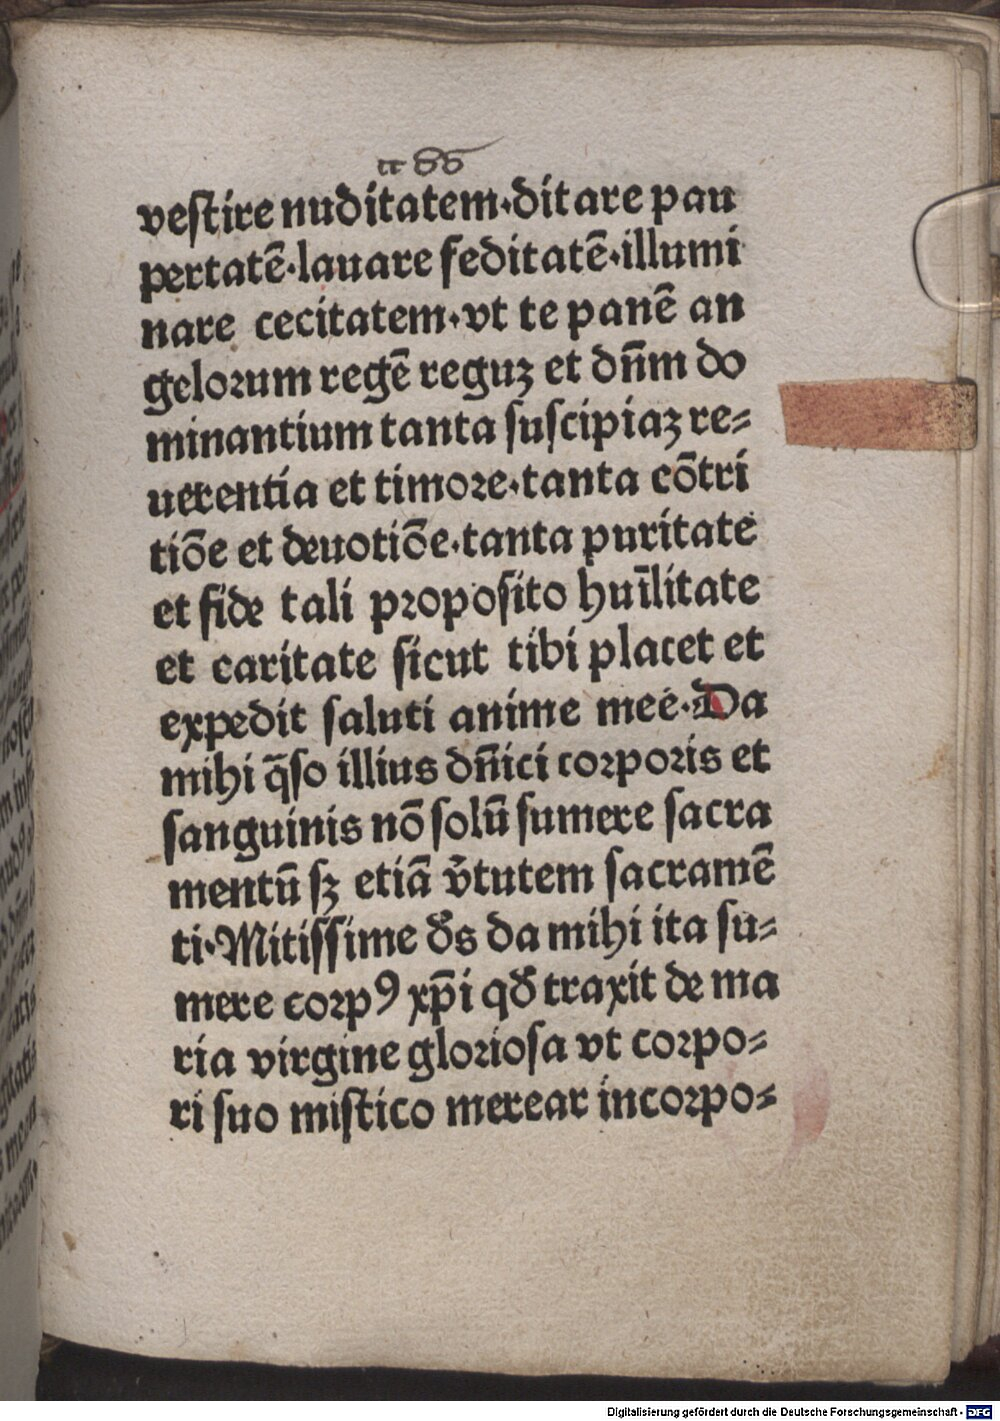 vestire nuditatem·ditare pau
pertatē·lauare feditatē·illumi
nare cecitatem·vt te panē an
gelorum regē reguꝫ et dn̄m do
minantium tanta suscipiaꝫ re⸗
uerentia et timore·tanta cōtri
tiōe et deuotiōe·tanta puritate
et fide tali proposito hūilitate
et caritate sicut tibi placet et
expedit saluti anime mee·Da
mihi q̄so illius dn̄ici corporis et
sanguinis nō solū sumere sacra
mentū sꝫ etiā v̓tutem sacramē
ti·Mitissime de᷒s da mihi ita su⸗
mere corpꝰ xp̄i qđ traxit de ma
ria virgine gloriosa vt corpo⸗
ri suo mistico merear incorpo⸗
Digitalisierung gefördert durch die Deutsche Forschungsgemeinschaft - DFG